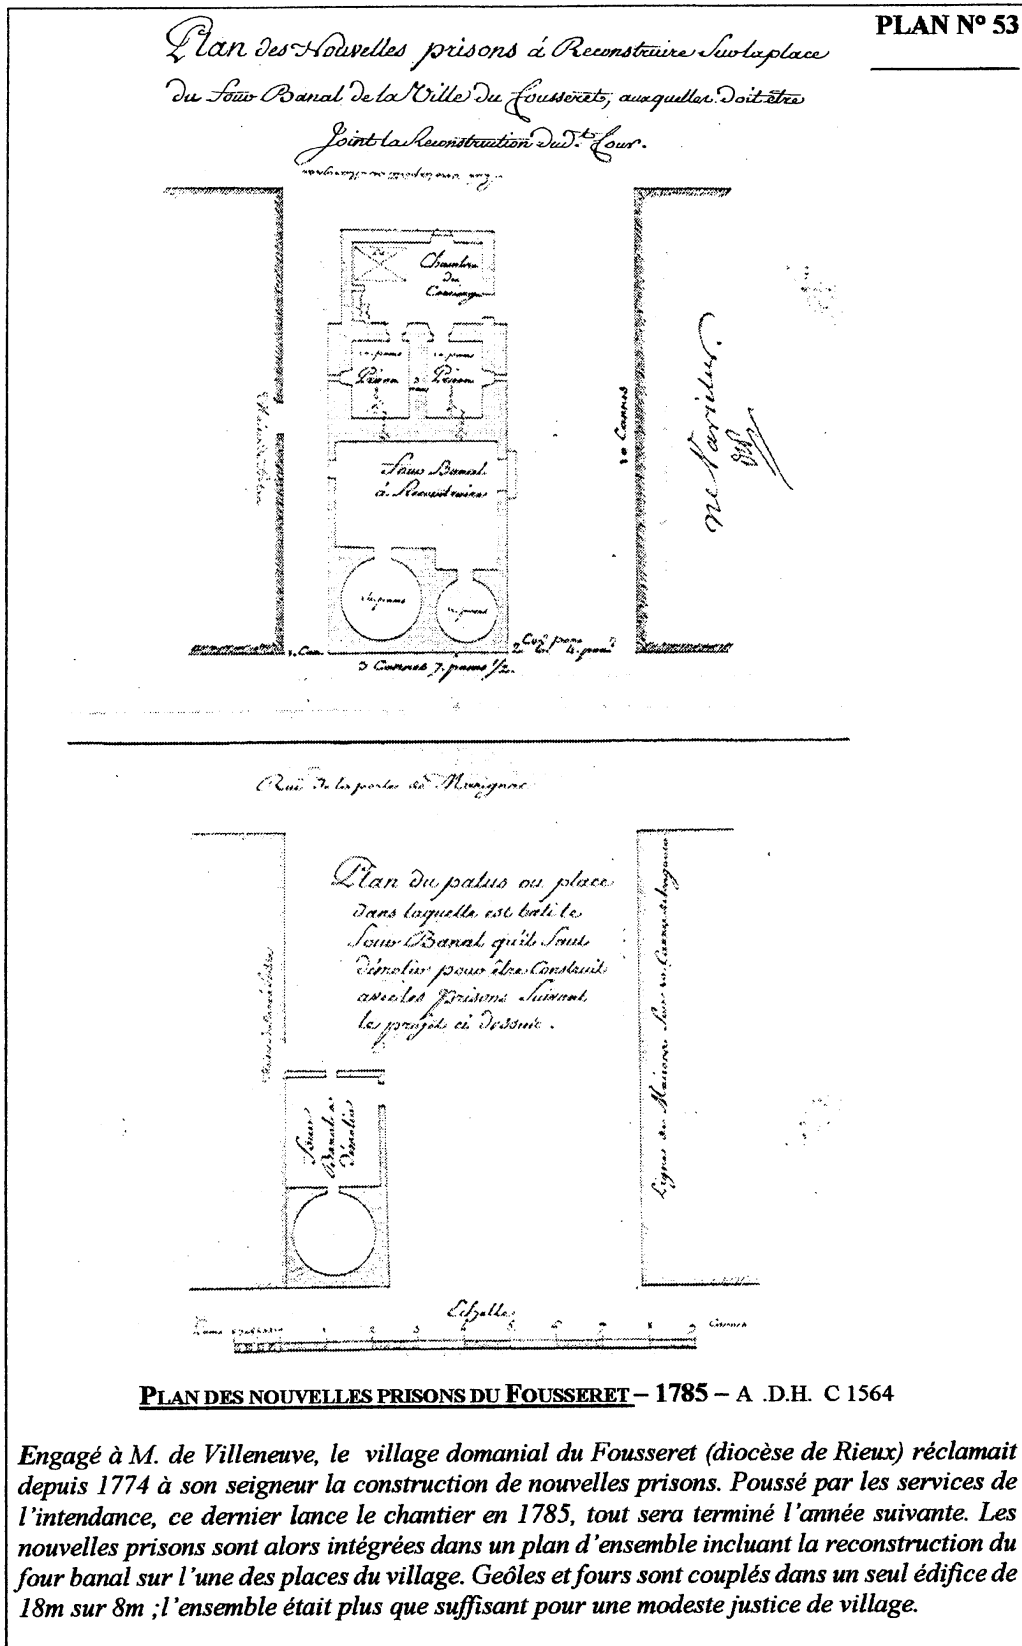 PLAN N° 53
Plan des Nouvelles prisons á Reconstruire Sur la place
du four Banal de la Ville du fousseret, auxquelles doit être
Joint la Reconstruction dud.t four.
Chambre
du
Concierge
Prison
Prison
four Banal
á Reconstruire
10 Cannes
ne Varietur.
1. Can.
3 Cannes 7. pams 1/2.
Ruë de la porte de Marignac
Plan du patus ou place
dans laquelle est bati le
four Banal qu'il faut
démolir pour être Construit
avec les prisons Suivant
le projet ci dessus.
four
Banal a
démolir
Lignes de Maisons Sur 10 Cannes de longueur
Echelle
1 2 3 4 5 6 7 8 9 Cannes
PLAN DES NOUVELLES PRISONS DU FOUSSERET – 1785 – A .D.H. C 1564
Engagé à M. de Villeneuve, le village domanial du Fousseret (diocèse de Rieux) réclamait
depuis 1774 à son seigneur la construction de nouvelles prisons. Poussé par les services de
l'intendance, ce dernier lance le chantier en 1785, tout sera terminé l'année suivante. Les
nouvelles prisons sont alors intégrées dans un plan d'ensemble incluant la reconstruction du
four banal sur l'une des places du village. Geôles et fours sont couplés dans un seul édifice de
18m sur 8m ;l'ensemble était plus que suffisant pour une modeste justice de village.